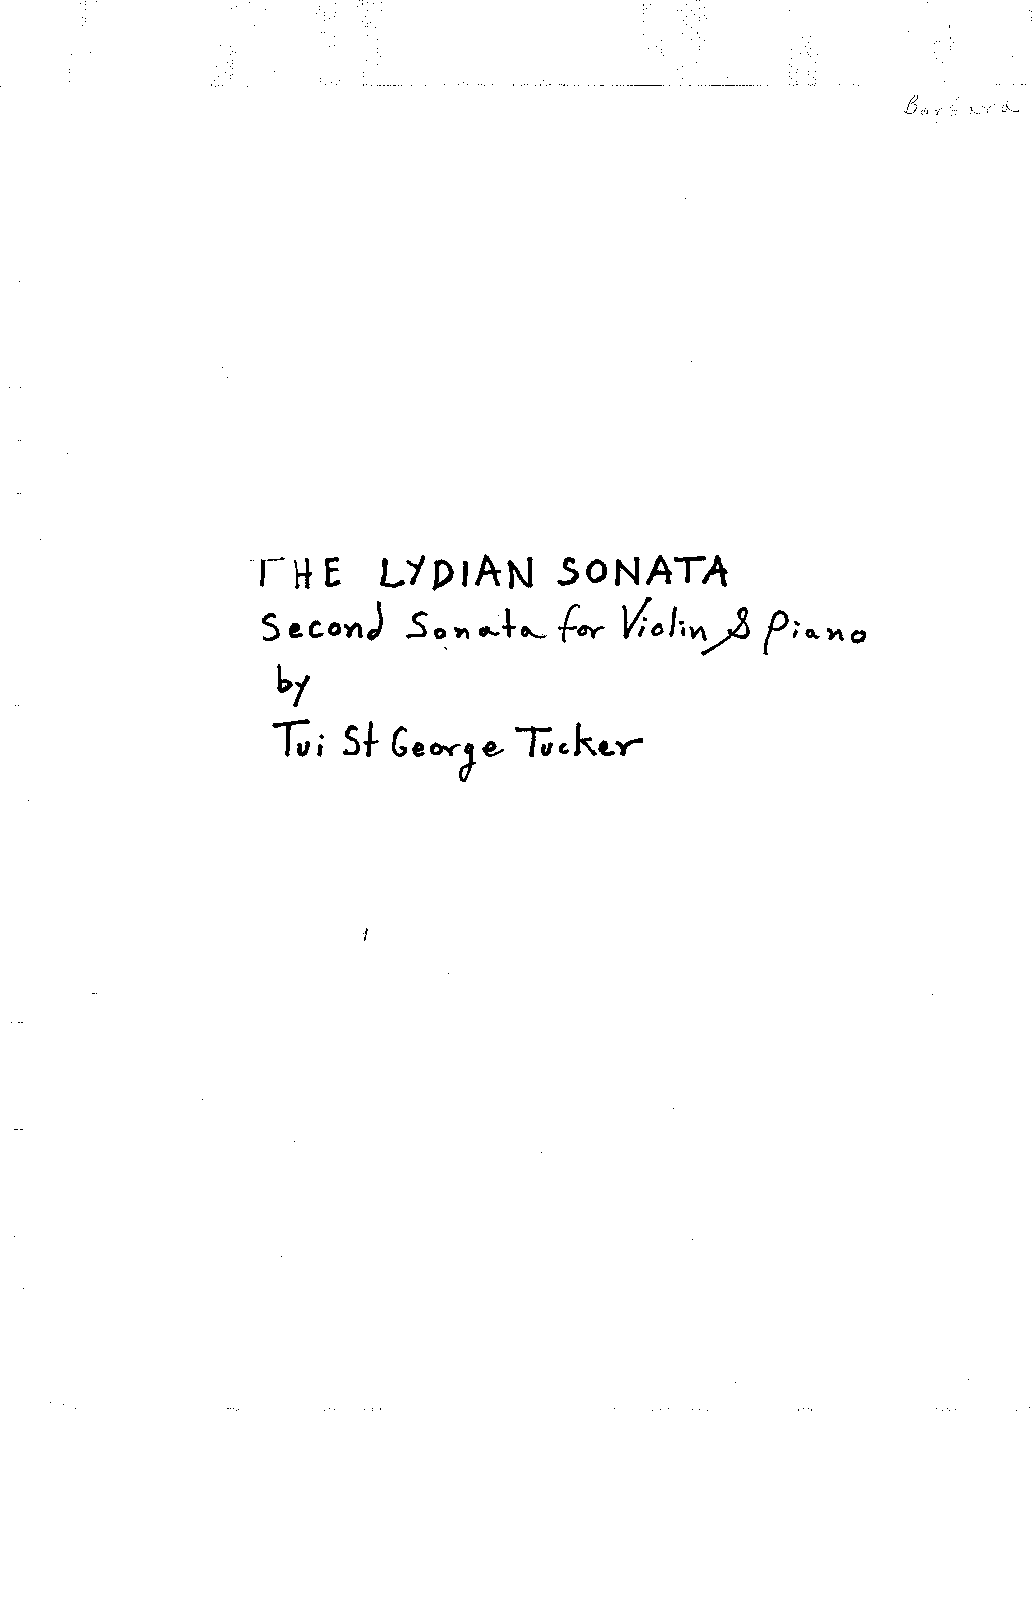 Barbara
THE LYDIAN SONATA
Second Sonata for Violin & Piano
by
Tui St George Tucker